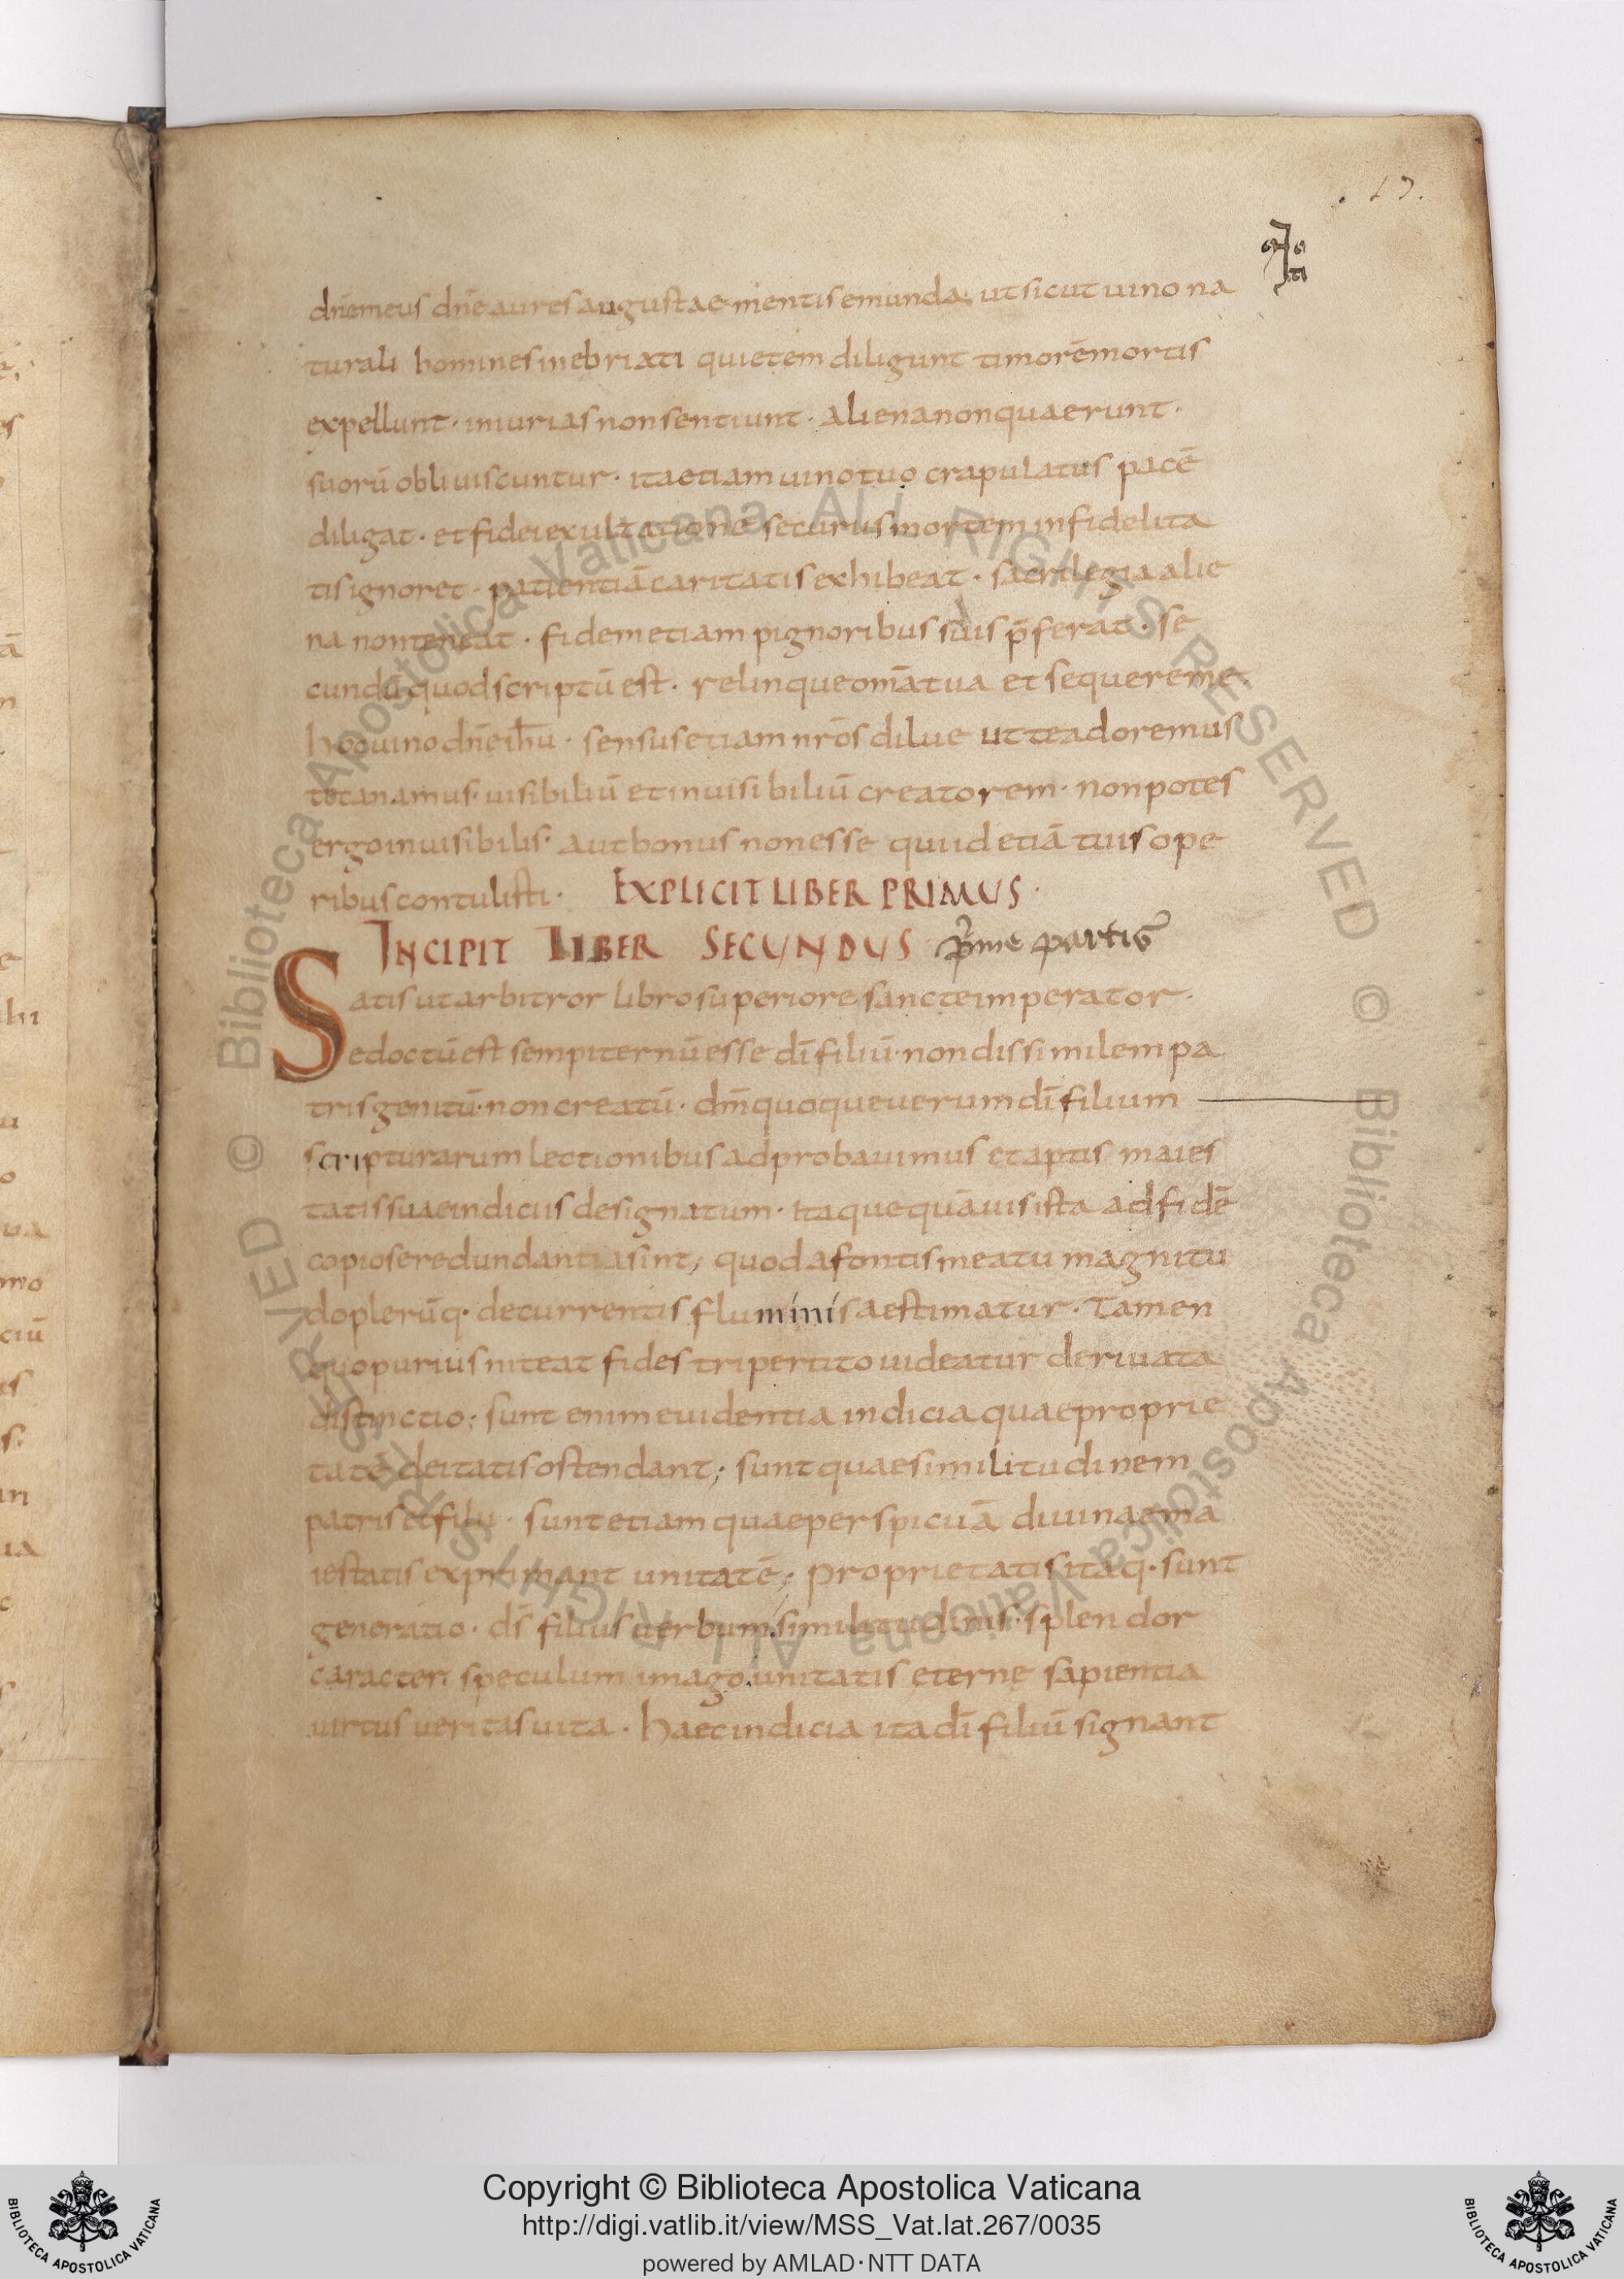 . 17.
dñe meus dñe aures augustae mentis emunda. ut sicut uino na
turali homines inebriati quietem diligunt timorē mortis
expellunt · iniurias non sentiunt · aliena non quaerunt ·
suorū obliuiscuntur · ita etiam uino tuo crapulatus pacē
diligat · et fidei exultatione securus mortem infidelita
tis ignoret · patientiā caritatis exhibeat · sacrilegia alie
na non teneat · fidem etiam pignoribus suis p̄ferat · se
cundū quod scriptū est · relinque om̄a tua et sequere me ·
hoc uino dñe ih̄u · sensus etiam nr̄os dilue ut te adoremus
uisibiliū et inuisibiliū creatorem · non potes
ergo inuisibilis · aut bonus non esse qui id etiā tuis ope
ribus contulisti · EXPLICIT LIBER PRIMUS ·
INCIPIT LIBER SECUNDUS p̄me partis
Satis ut arbitror libro superiore sancte imperator ·
edoctū est sempiternū esse dī filiū · non dissimilem pa
tris genitū · non creatū · dm̄ quoque uerum dī filium
scripturarum lectionibus adprobauimus et aptis maies
tatis suae indiciis designatum · Itaque quāuis ista ad fidē
copiose redundantia sint; quod a fontis meatu magnitu
do plerūq · decurrentis fluminis aestimatur · Tamen
quo purius niteat fides tripertito uideatur deriuata
distinctio; sunt enim euidentia indicia quae proprie
tatē deitatis ostendant; sunt quae similitudinem
patris et filii · sunt etiam quae perspicuā diuinae ma
iestatis exprimant unitatē; Proprietatis itaq · sunt
generatio · dš filius uerbum · similitudinis · splendor
caracter speculum imago · unitatis eterne sapientia
uirtus ueritas uita · haec indicia ita dī filiū signant
© Biblioteca Apostolica Vaticana ALL RIGHTS RESERVED
© Biblioteca Apostolica Vaticana ALL RIGHTS RESERVED
Copyright © Biblioteca Apostolica Vaticana
http://digi.vatlib.it/view/MSS_Vat.lat.267/0035
powered by AMLAD · NTT DATA
BIBLIOTECA APOSTOLICA VATICANA
BIBLIOTECA APOSTOLICA VATICANA